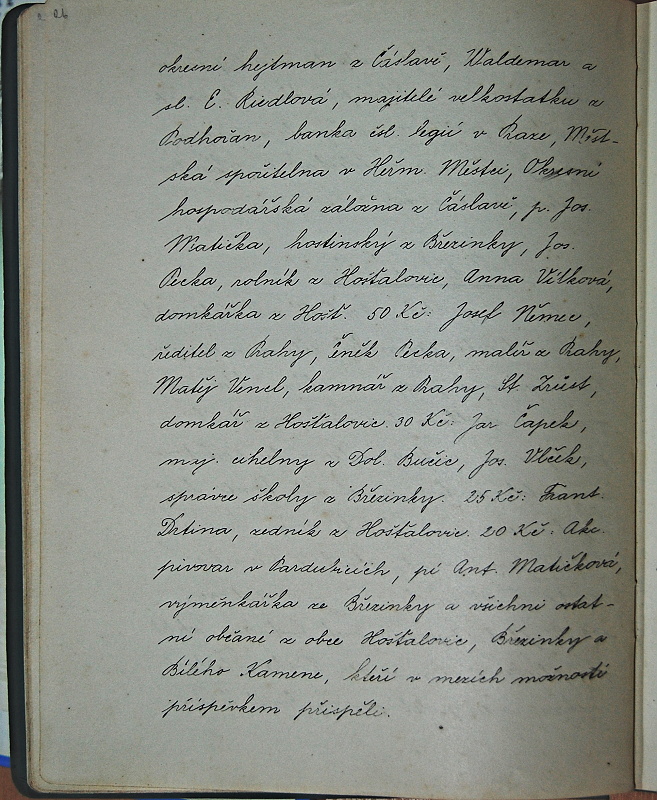 26
okresní hejtman z Čáslavě, Waldemar a
sl. E. Riedlová, majitelé velkostatku z
Podhořan, banka čsl. legií v Praze, Měst-
ská spořitelna v Heřm. Městci, Okresní
hospodářská záložna z Čáslavě, p. Jos.
Matička, hostinský z Březinky, Jos.
Pecka, rolník z Hošťalovic, Anna Vílková,
domkářka z Hošť. 50 Kč: Josef Němec,
ředitel z Prahy, Čeněk Pecka, malíř z Prahy,
Matěj Vencl, kamnář z Prahy, St. Zrůst,
domkář z Hošťalovic. 30 Kč: Jar Čapek,
maj. cihelny z Dol. Bučic, Jos. Vlček,
správce školy z Březinky. 25 Kč: Frant.
Drtina, zedník z Hošťalovic. 20 Kč: Akc.
pivovar v Pardubicích, pí Ant. Matičková,
výměnkářka ze Březinky a všichni ostat-
ní občané z obce Hošťalovic, Březinky a
Bílého Kamene, kteří v mezích možnosti
příspěvkem přispěli.